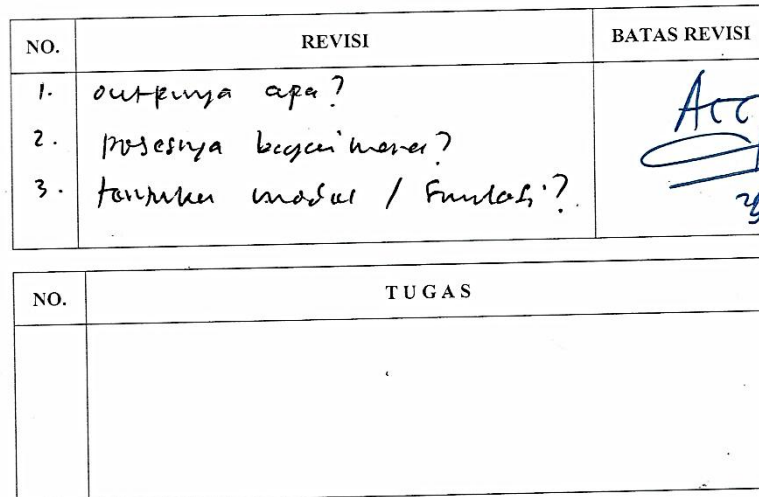 NO. REVISI BATAS REVISI
1. outputnya apa?
2. prosesnya bagaimana?
3. tunjukkan model / simulasi?
Acc
NO. TUGAS